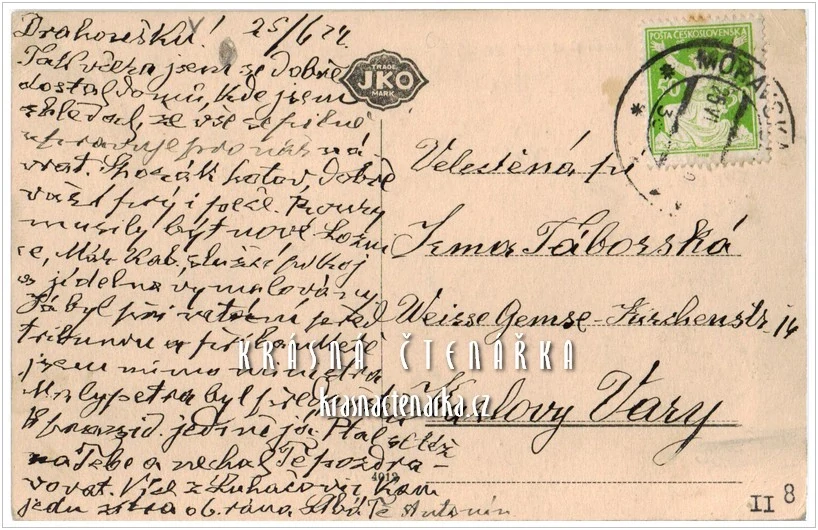 Drahoušku! 25/6 24.
Tak včera jsem se dobře
dostal domů, kde jsem
shledal, že vše se pilně
upravuje pro náš ná
vrat. Sporák hotov, dobře
vaří prý i peče. Roury
musily být nové. Ložni
ce, Můj Kab., služ. pokoj
a jídelna vymalovány
Já byl při vítání před
tribunou a
jsem mimo ministra
Malypetra byl představen
p. presid. jediný já. Ptal se též
na Tebe a nechal Tě pozdra-
vovat. Více z Luhačovic kam
jedu zítra o 6. ráno. Líbá Tě Antonín
TRADE
JKO
MARK
4912
POŠTA ČESKOSLOVENSKÁ
MORAVSKÁ
25.VI
Velectěná pí
Irma Táborská
Weisse Gemse - Kirchenstr. 14
Karlovy Vary
KRÁSNÁ ČTENÁŘKA
krasnactenarka.cz
II 8